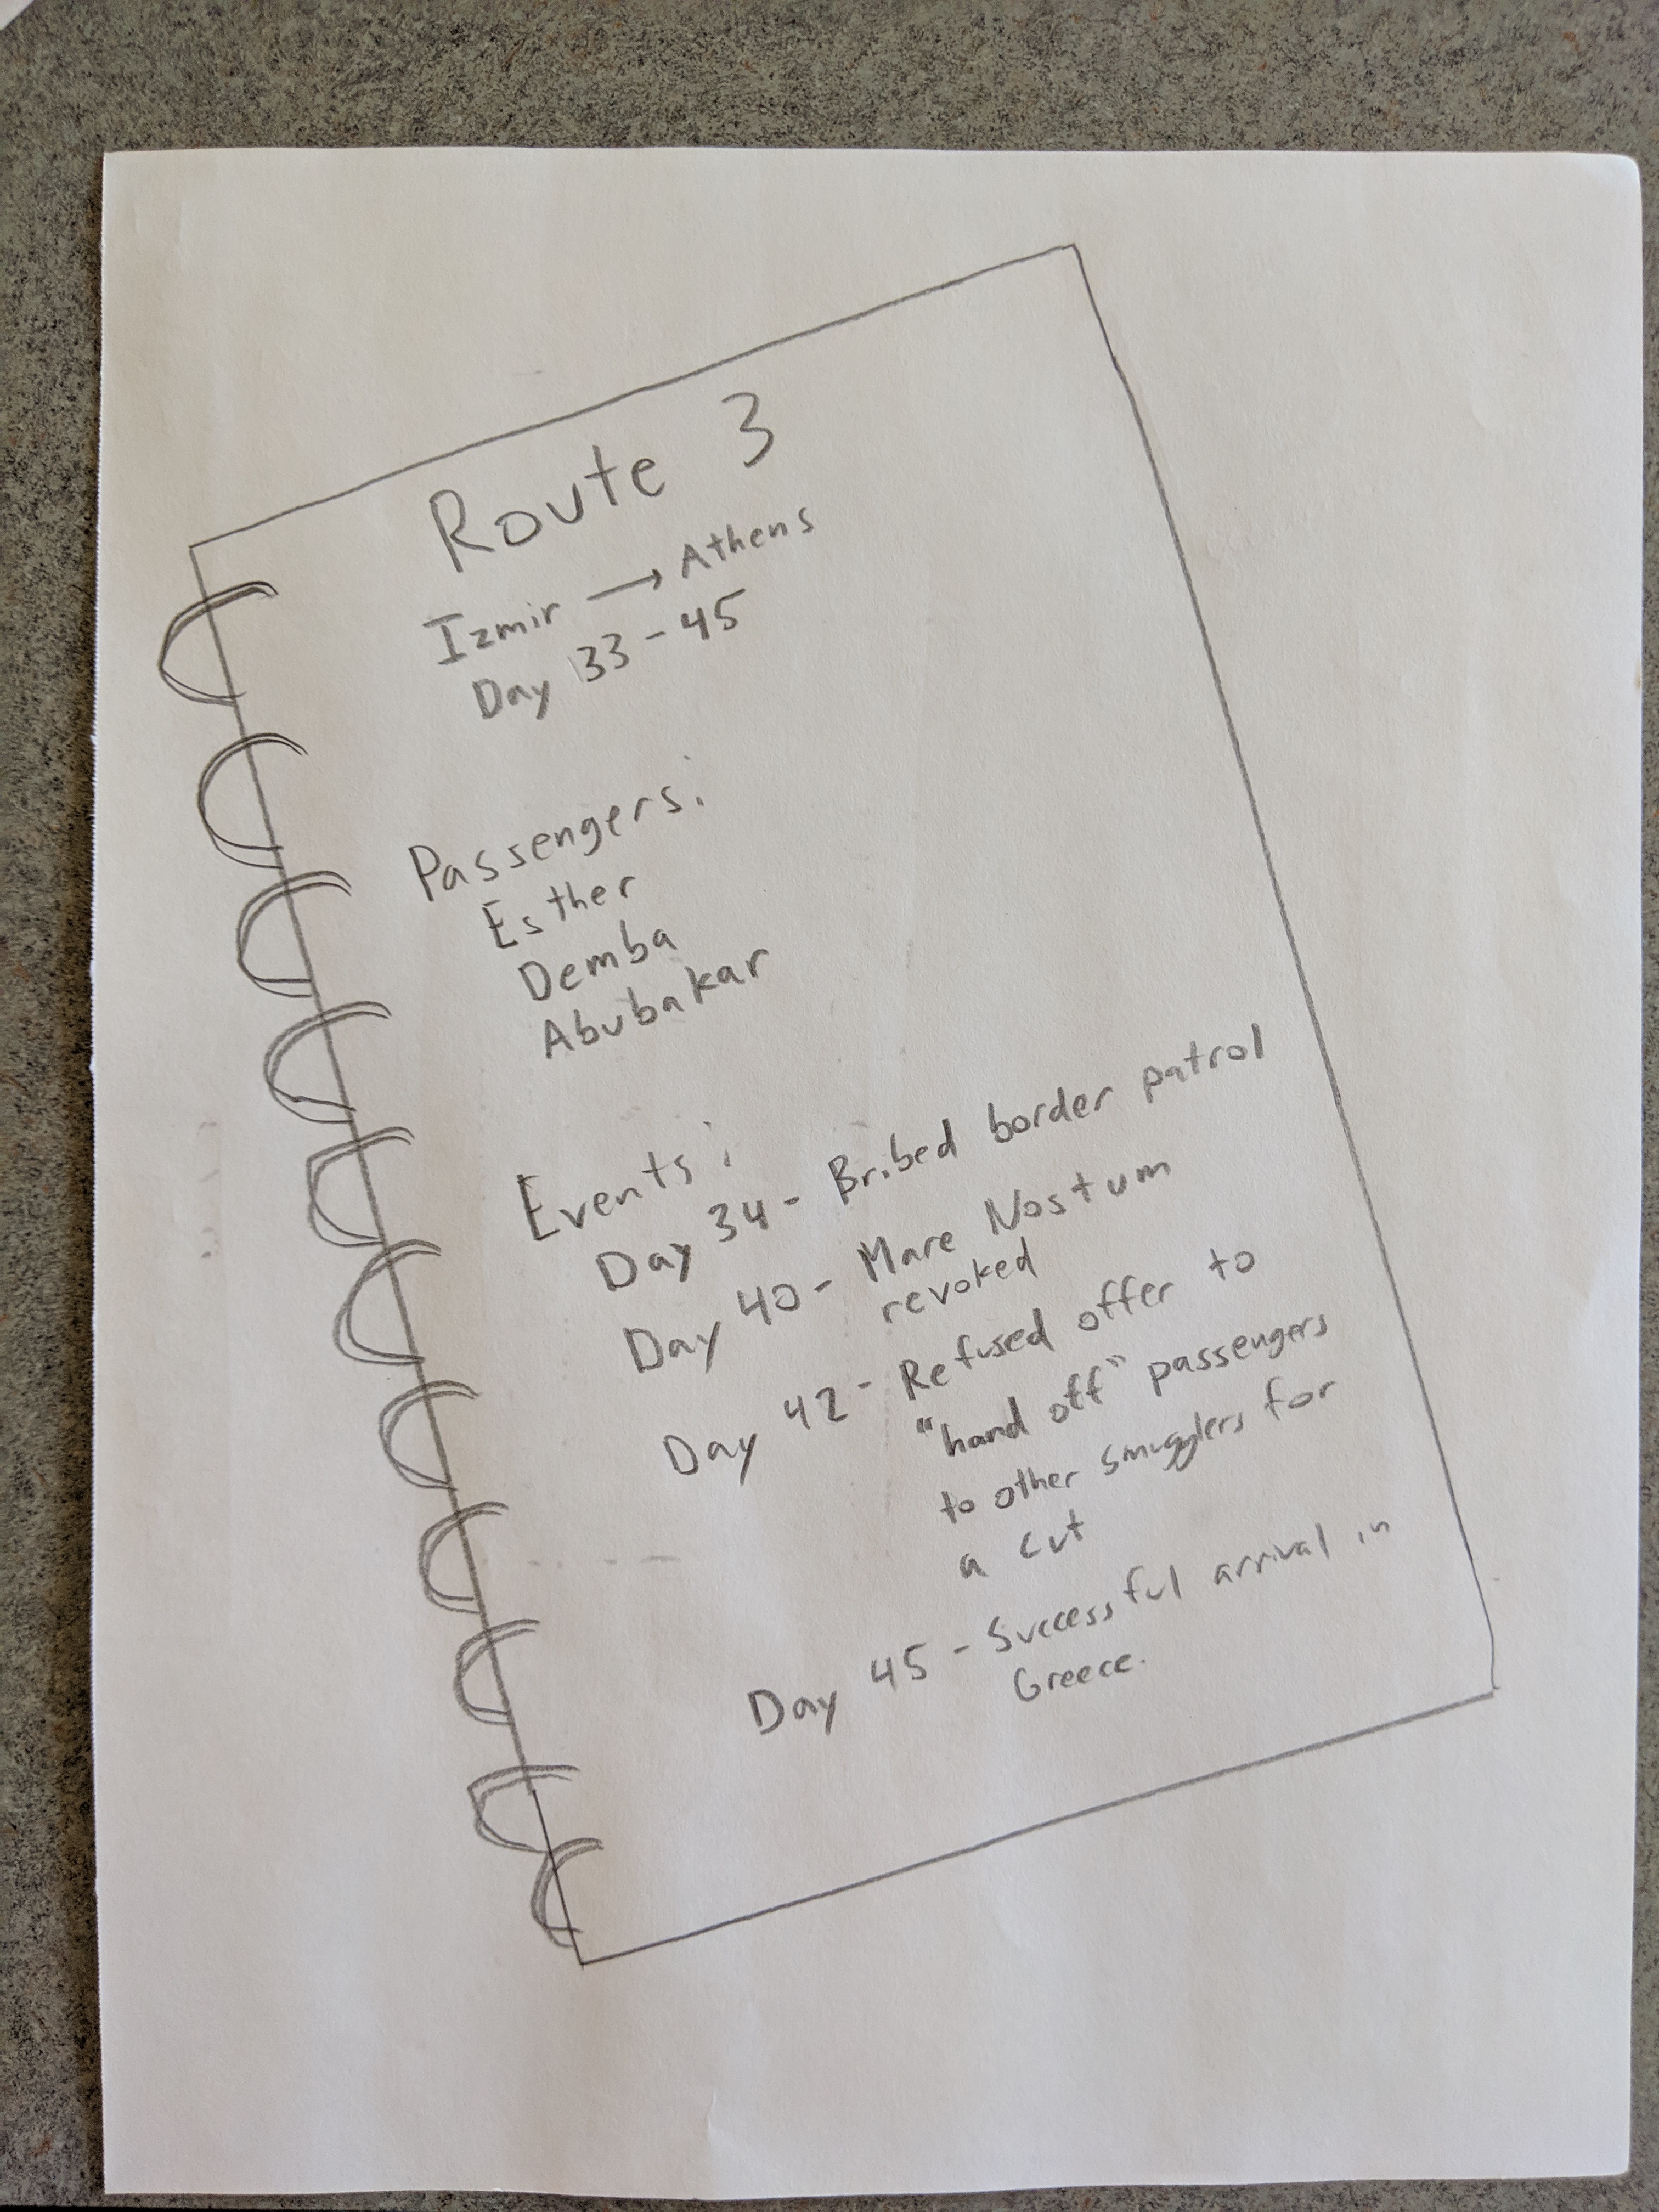 Route 3
Izmir → Athens
Day 33-45
Passengers:
Esther
Demba
Abubakar
Events:
Day 34- Bribed border patrol
Day 40- Mare Nostum
revoked
Day 42- Refused offer to
"hand off" passengers
to other smugglers for
a cut
Day 45- Successful arrival in
Greece.